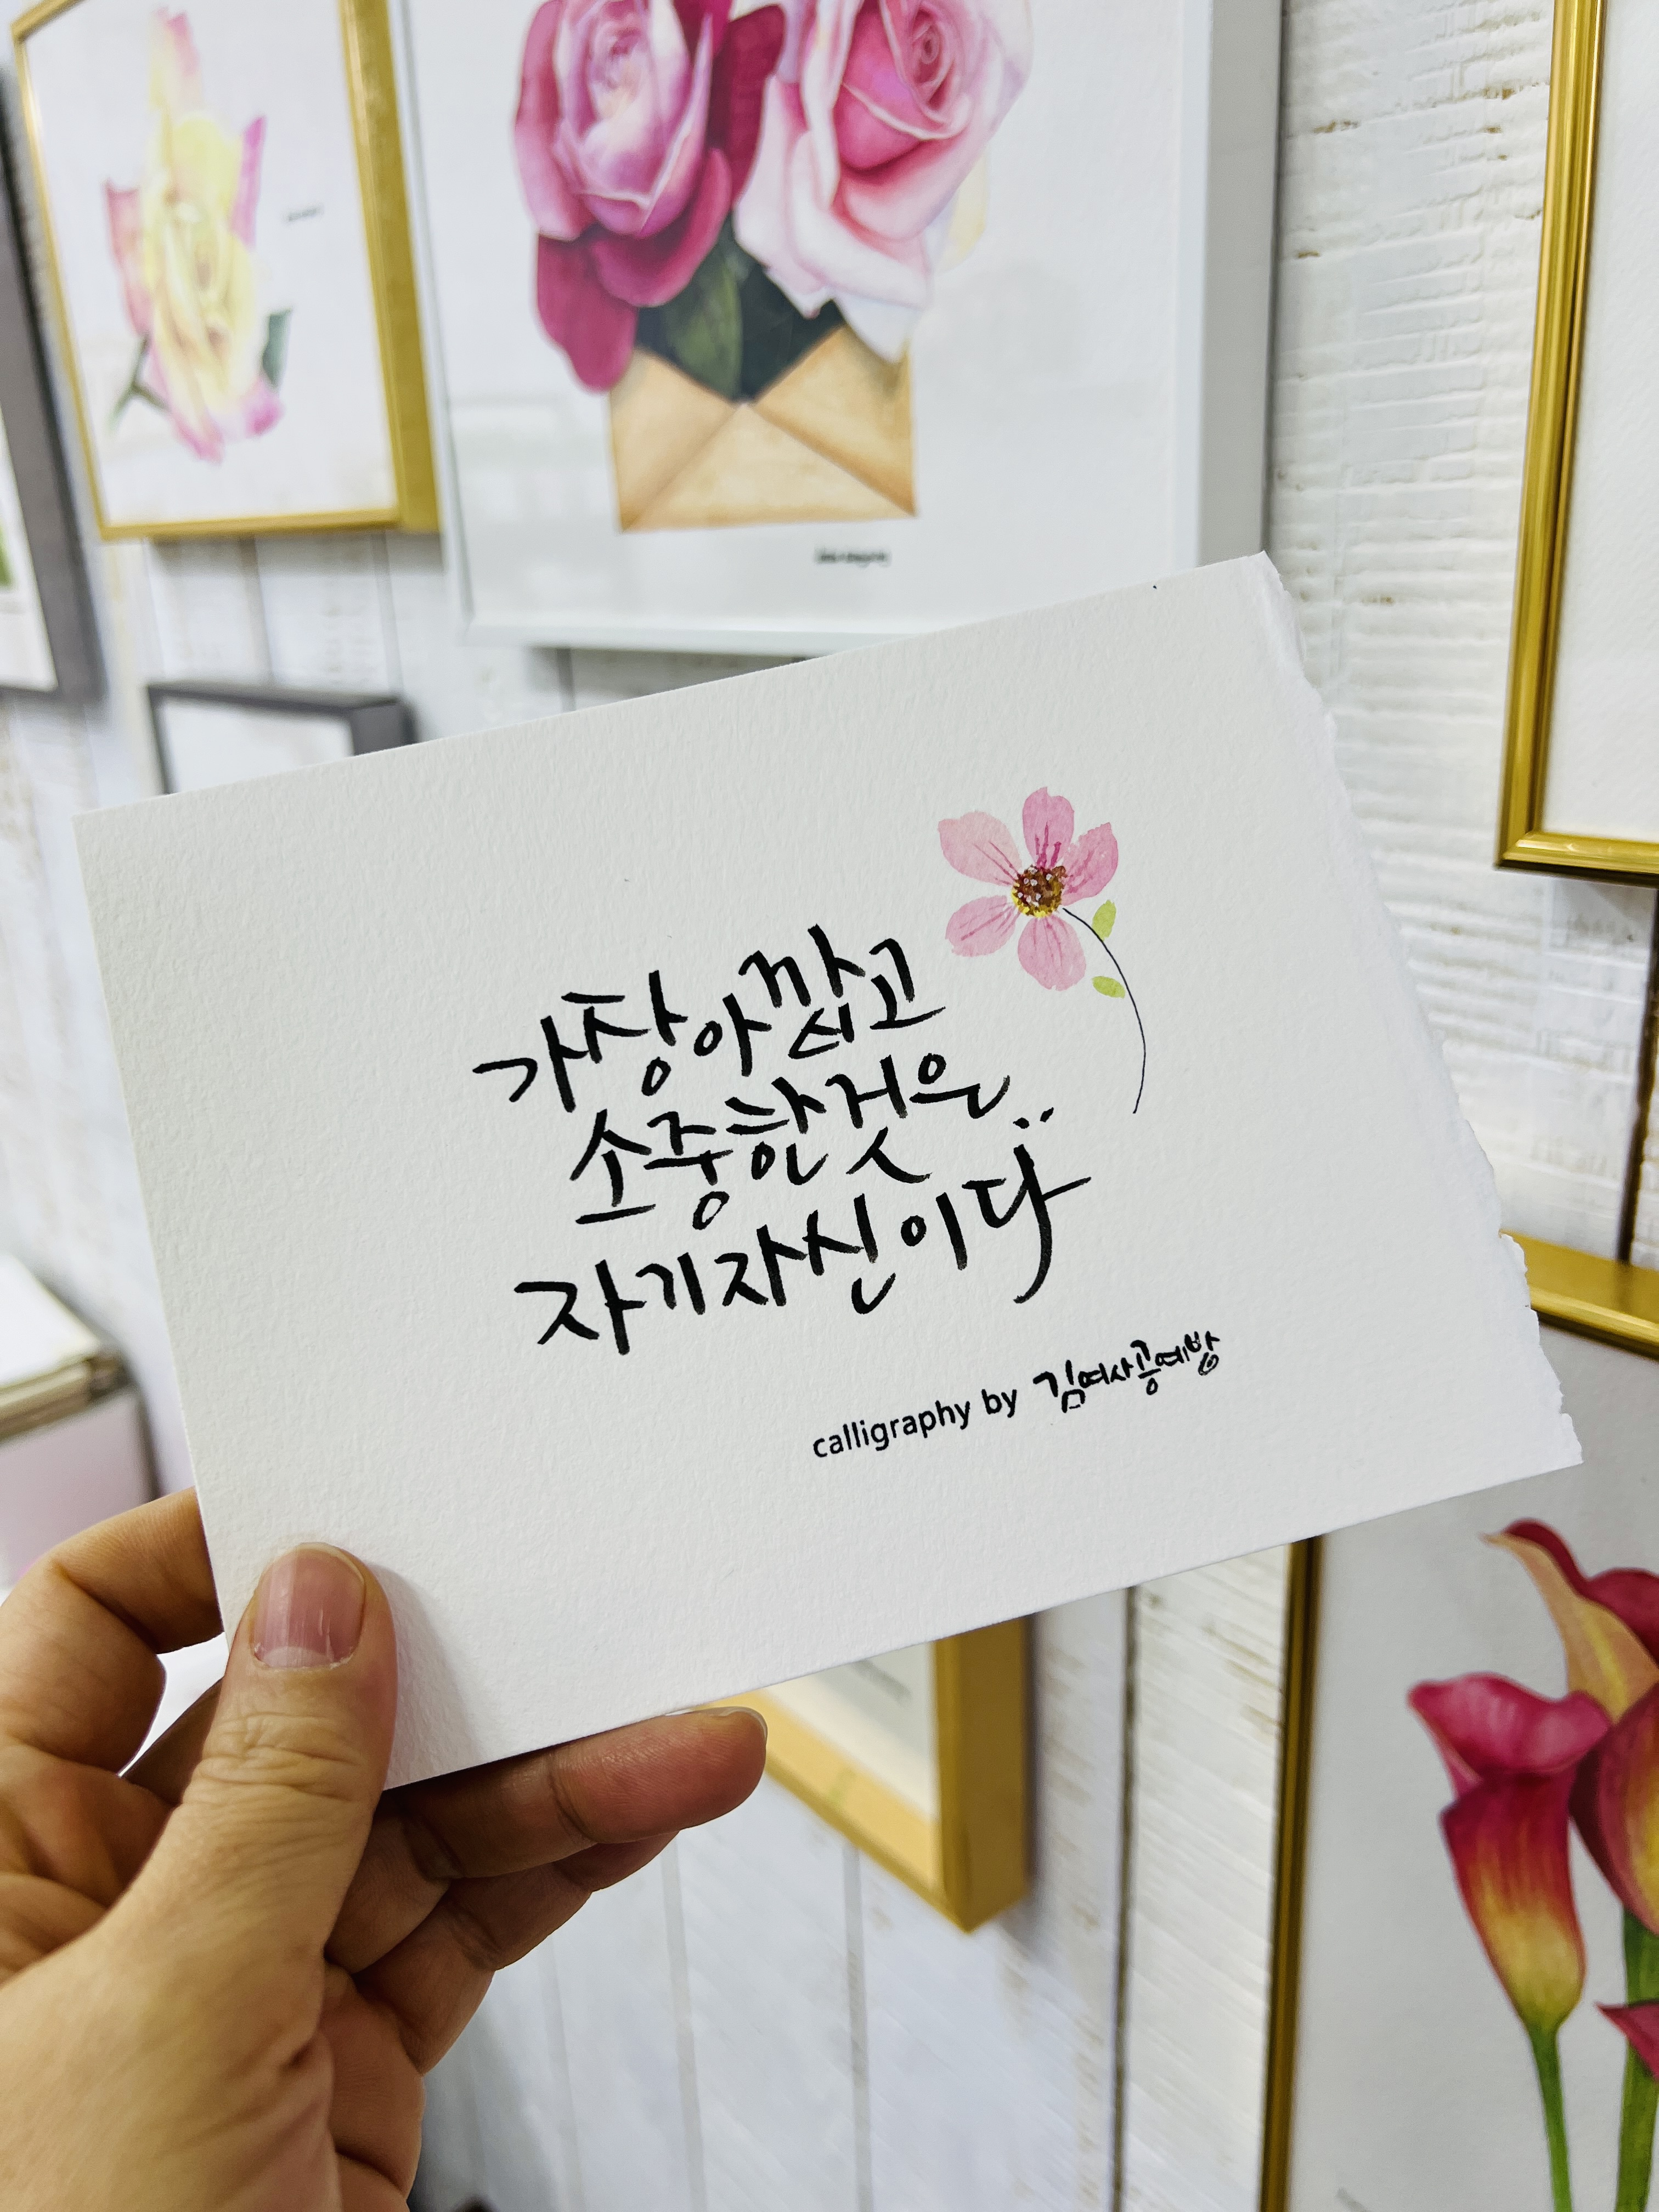 가장 아깝고
소중한 것은..
자기 자신이다
calligraphy by 김여사공예방